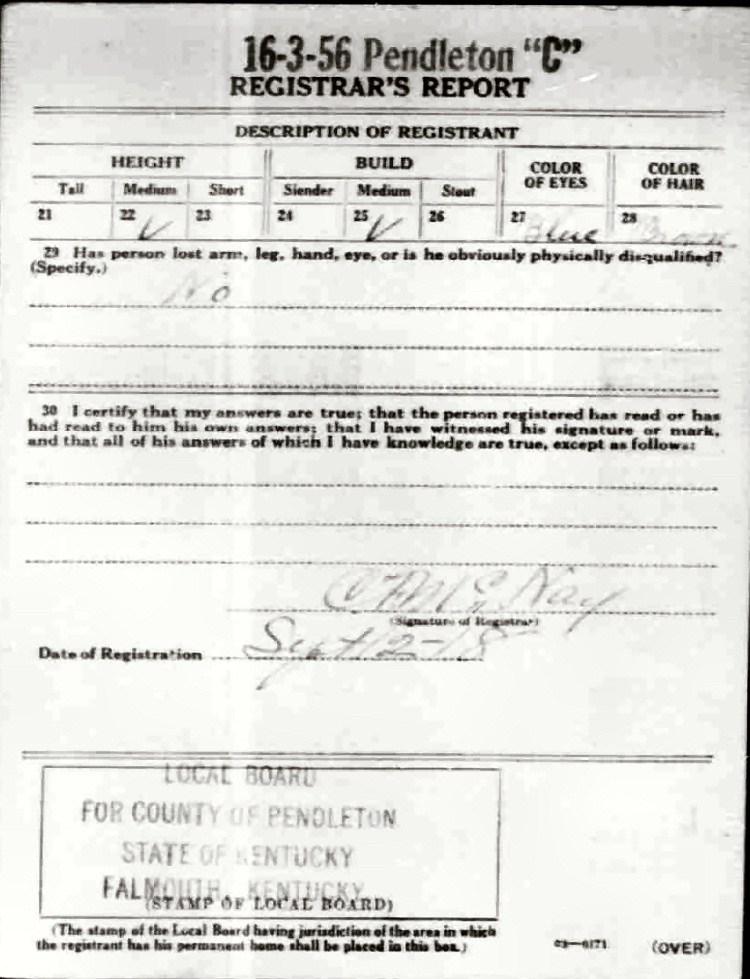 16-3-56 Pendleton "C"
REGISTRAR'S REPORT
DESCRIPTION OF REGISTRANT
HEIGHT BUILD COLOR OF EYES COLOR OF HAIR
Tall Medium Short Slender Medium Stout
21 22 √ 23 24 25 √ 26 27 Blue 28 Brown
29 Has person lost arm, leg, hand, eye, or is he obviously physically disqualified?
(Specify.)
No
30 I certify that my answers are true; that the person registered has read or has
had read to him his own answers; that I have witnessed his signature or mark,
and that all of his answers of which I have knowledge are true, except as follows:
(Signature of Registrar)
Date of Registration Sept 12-18
LOCAL BOARD
FOR COUNTY OF PENDLETON
STATE OF KENTUCKY
FALMOUTH, KENTUCKY
(STAMP OF LOCAL BOARD)
(The stamp of the Local Board having jurisdiction of the area in which
the registrant has his permanent home shall be placed in this box.)
03—6171 (OVER)